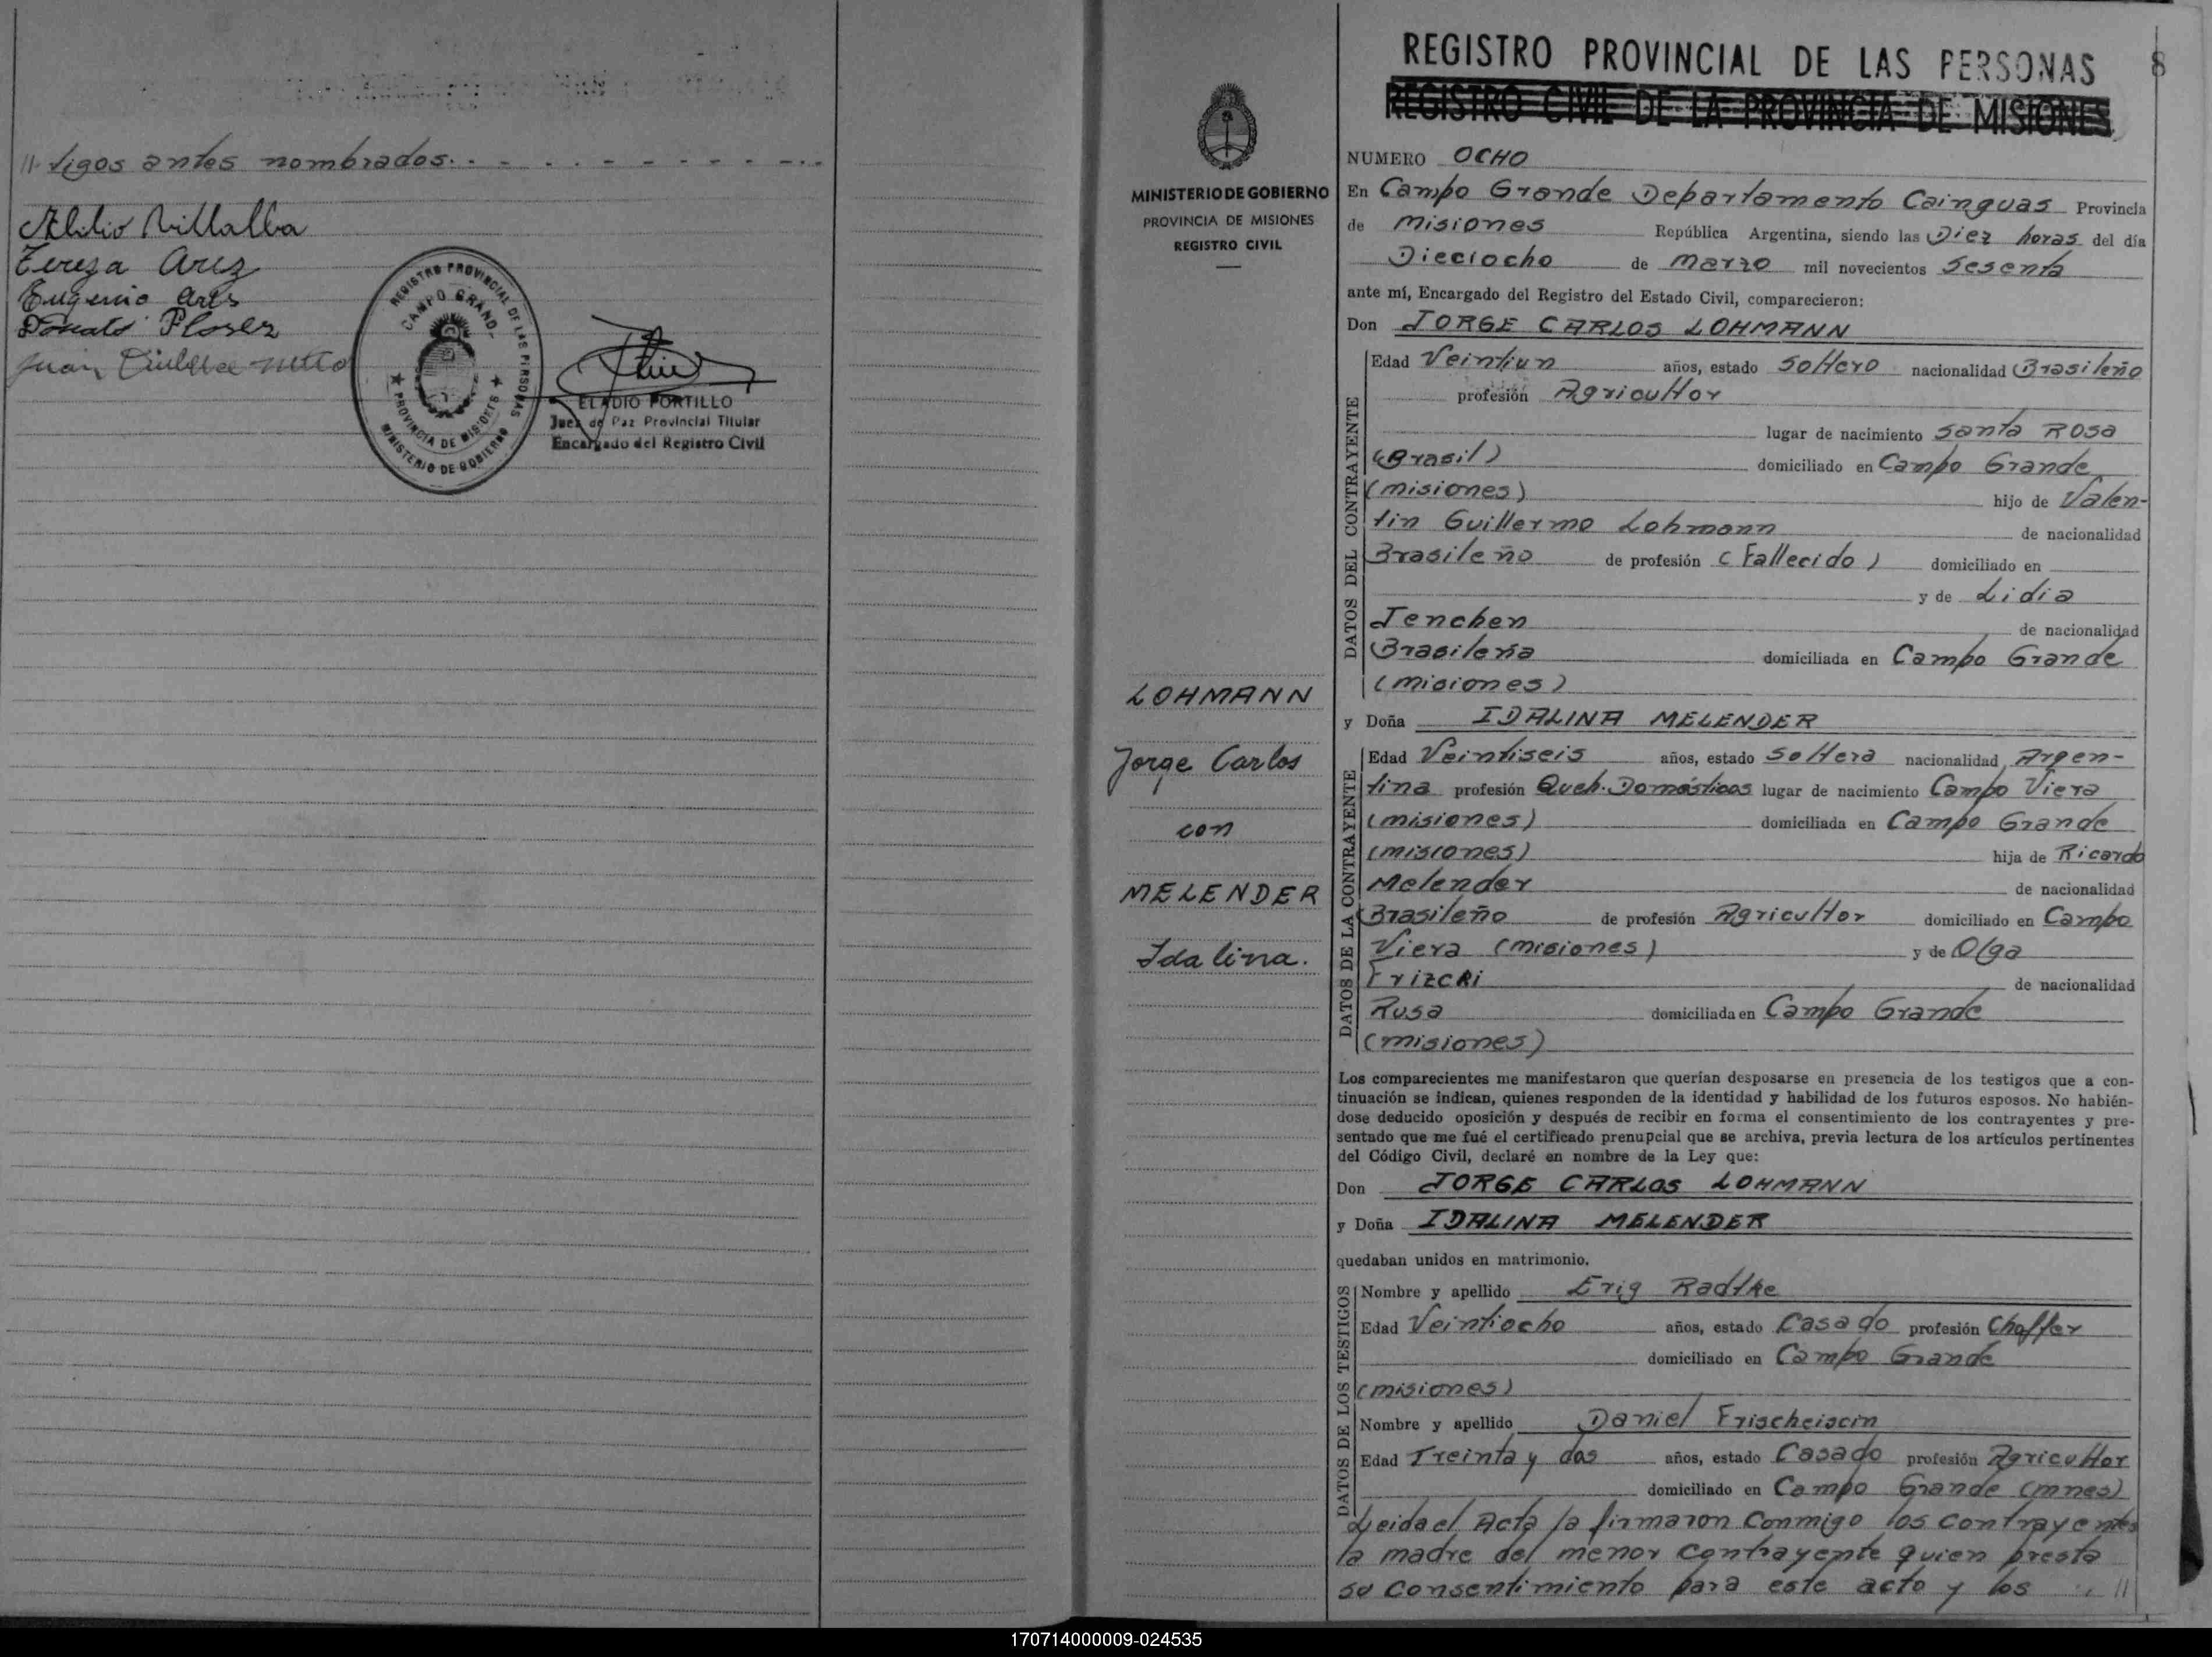 ||- tigos antes nombrados. . - . - . - - - - - - - - . .
Atilio Villalba
Tereza Arez
Eugenio Ares
Donato Florez
Juan
REGISTRO PROVINCIAL DE LAS PERSONAS
CAMPO GRANDE
PROVINCIA DE MISIONES
MINISTERIO DE GOBIERNO
ELADIO PORTILLO
Juez de Paz Provincial Titular
Encargado del Registro Civil
MINISTERIO DE GOBIERNO
PROVINCIA DE MISIONES
REGISTRO CIVIL
LOHMANN
Jorge Carlos
con
MELENDER
Idalina.
REGISTRO PROVINCIAL DE LAS PERSONAS 8
REGISTRO CIVIL DE LA PROVINCIA DE MISIONES
NUMERO OCHO
En Campo Grande Departamento Cainguas Provincia
de Misiones República Argentina, siendo las Diez horas del día
Dieciocho de Marzo mil novecientos Sesenta
ante mí, Encargado del Registro del Estado Civil, comparecieron:
Don JORGE CARLOS LOHMANN
DATOS DEL CONTRAYENTE
Edad Veintiun años, estado Soltero nacionalidad Brasileño
profesión Agricultor
lugar de nacimiento Santa Rosa
(Brasil) domiciliado en Campo Grande
(Misiones) hijo de Valen-
tin Guillermo Lohmann de nacionalidad
Brasileño de profesión (Fallecido) domiciliado en
y de Lidia
Jenchen de nacionalidad
Brasileña domiciliada en Campo Grande
(Misiones)
y Doña IDALINA MELENDER
DATOS DE LA CONTRAYENTE
Edad Veintiseis años, estado Soltera nacionalidad Argen-
tina profesión Queh. Domésticos lugar de nacimiento Campo Viera
(Misiones) domiciliada en Campo Grande
(Misiones) hija de Ricardo
Melender de nacionalidad
Brasileño de profesión Agricultor domiciliado en Campo
Viera (Misiones) y de Olga
Frizcki de nacionalidad
Rusa domiciliada en Campo Grande
(Misiones)
Los comparecientes me manifestaron que querían desposarse en presencia de los testigos que a con-
tinuación se indican, quienes responden de la identidad y habilidad de los futuros esposos. No habién-
dose deducido oposición y después de recibir en forma el consentimiento de los contrayentes y pre-
sentado que me fué el certificado prenupcial que se archiva, previa lectura de los artículos pertinentes
del Código Civil, declaré en nombre de la Ley que:
Don JORGE CARLOS LOHMANN
y Doña IDALINA MELENDER
quedaban unidos en matrimonio.
DATOS DE LOS TESTIGOS
Nombre y apellido Erig Radtke
Edad Veintiocho años, estado Casado profesión Choffer
domiciliado en Campo Grande
(Misiones)
Nombre y apellido Daniel Frischeisem
Edad Treinta y dos años, estado Casado profesión Agricultor
domiciliado en Campo Grande (Mnes)
Leida el Acta la firmaron conmigo los contrayentes
la madre del menor contrayente quien presta
su consentimiento para este acto y los ..||
170714000009-024535